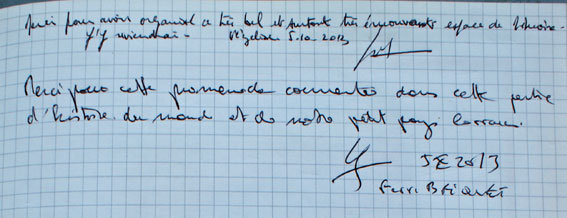 Merci pour avoir organisé ce très bel et surtout très émouvant espace de mémoire.
J'y reviendrai - 5.10.2013
Merci pour cette promenade commentée dans cette partie
d'histoire du monde et de notre petit pays lorrain.
2013